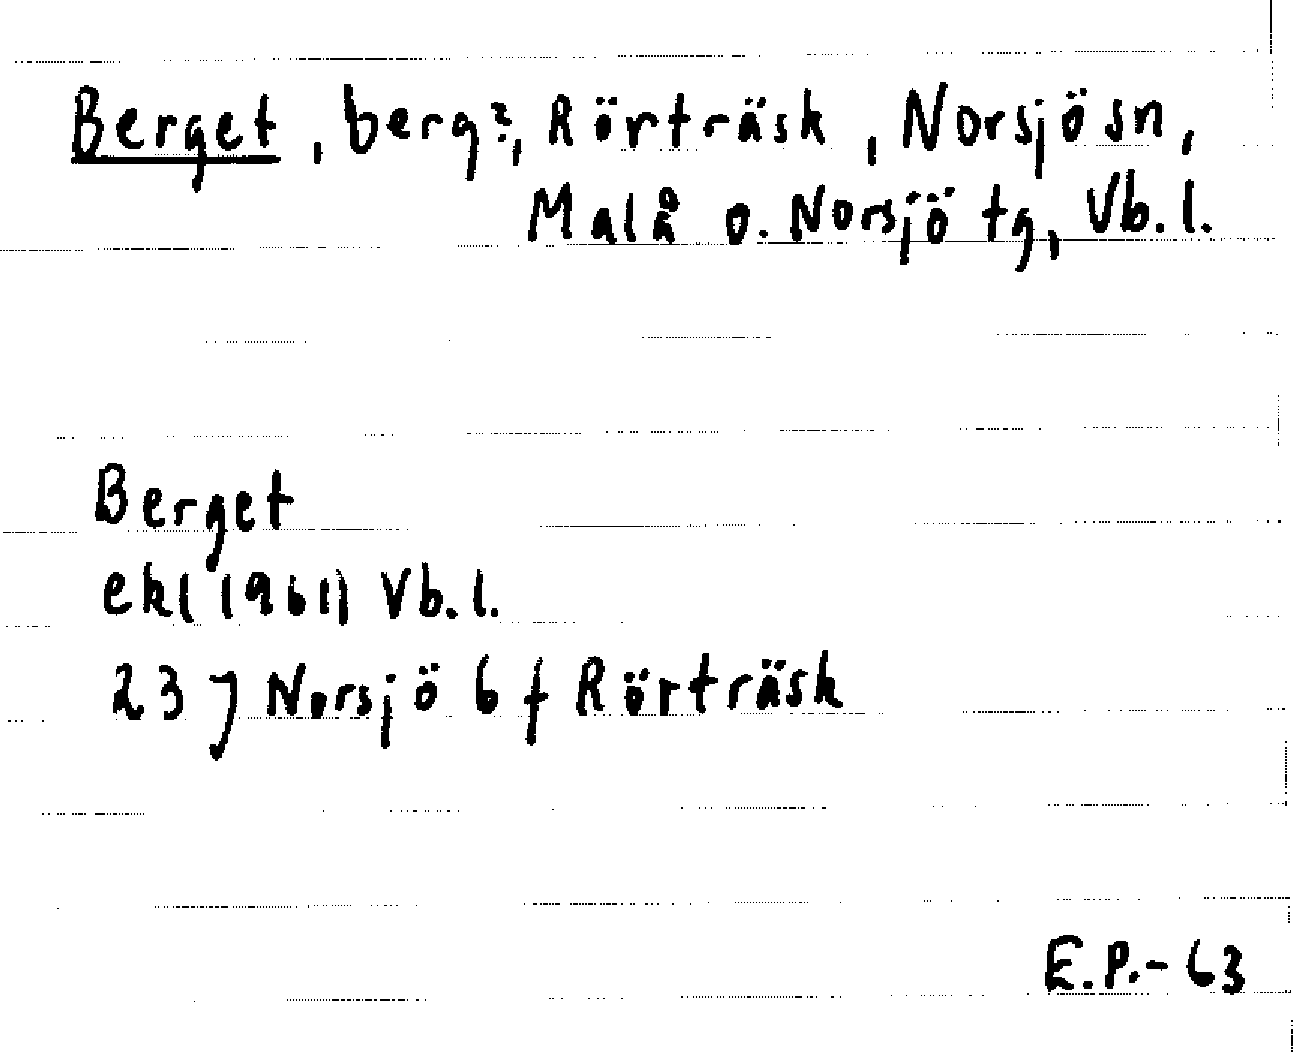 Berget, berg?, Rörträsk, Norsjö sn,
Malå o. Norsjö tg, Vb. l.
Berget
ekl (1961) Vb. l.
23 J Norsjö 6 f Rörträsk
E.P.-63